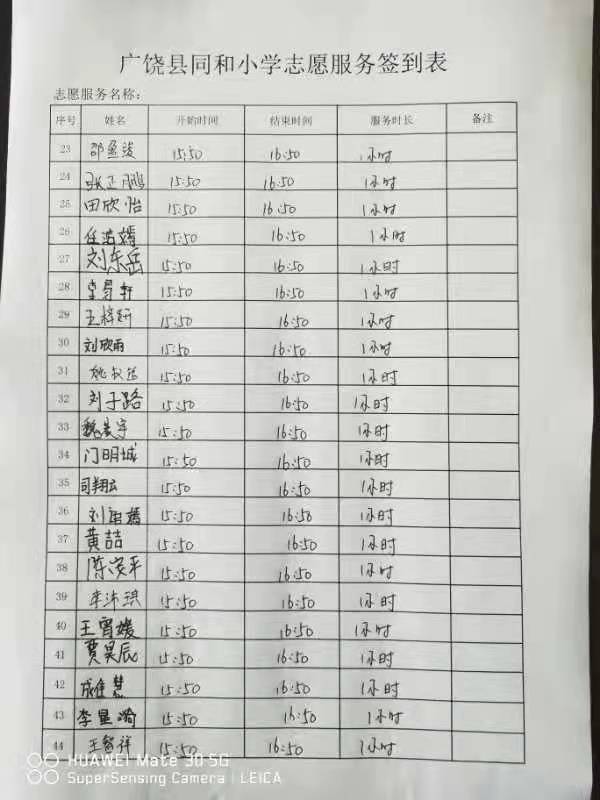 广饶县同和小学志愿服务签到表
志愿服务名称：
序号 姓名 开始时间 结束时间 服务时长 备注
23 15:50 16:50 1小时
24 张正鹏 15:50 16:50 1小时
25 田欣怡 15:50 16:50 1小时
26 任洁嫣 15:50 16:50 1小时
27 刘东岳 15:50 16:50 1小时
28 15:50 16:50 1小时
29 王梓妍 15:50 16:50 1小时
30 刘欣雨 15:50 16:50 1小时
31 15:50 16:50 1小时
32 刘子路 15:50 16:50 1小时
33 魏美宇 15:50 16:50 1小时
34 门明城 15:50 16:50 1小时
35 司翔云 15:50 16:50 1小时
36 刘 15:50 16:50 1小时
37 黄喆 15:50 16:50 1小时
38 陈家平 15:50 16:50 1小时
39 李沛琪 15:50 16:50 1小时
40 王霄媛 15:50 16:50 1小时
41 贾昊辰 15:50 16:50 1小时
42 成佳慧 15:50 16:50 1小时
43 李显漪 15:50 16:50 1小时
44 王智祥 15:50 16:50 1小时
HUAWEI Mate 30 5G
SuperSensing Camera | LEICA